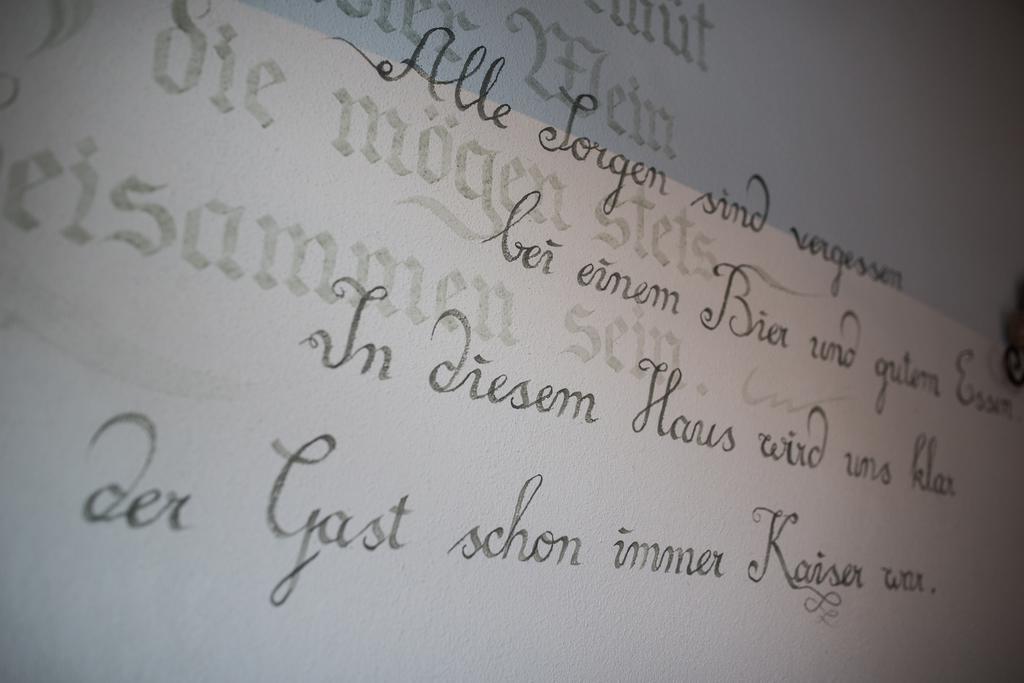 Mein
die mögen stets
beisammen sein.
Alle Sorgen sind vergessen
bei einem Bier und gutem Essen.
In diesem Haus wird uns klar
der Gast schon immer Kaiser war.